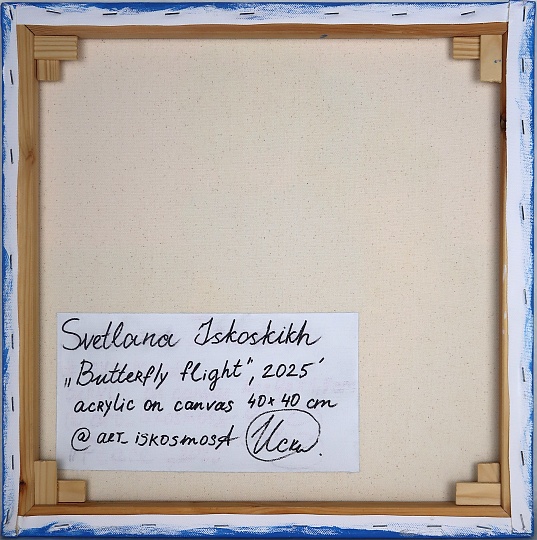 Svetlana Iskoskikh
„Butterfly flight", 2025'
acrylic on canvas 40×40 cm
@ art_iskosmosA Иски.